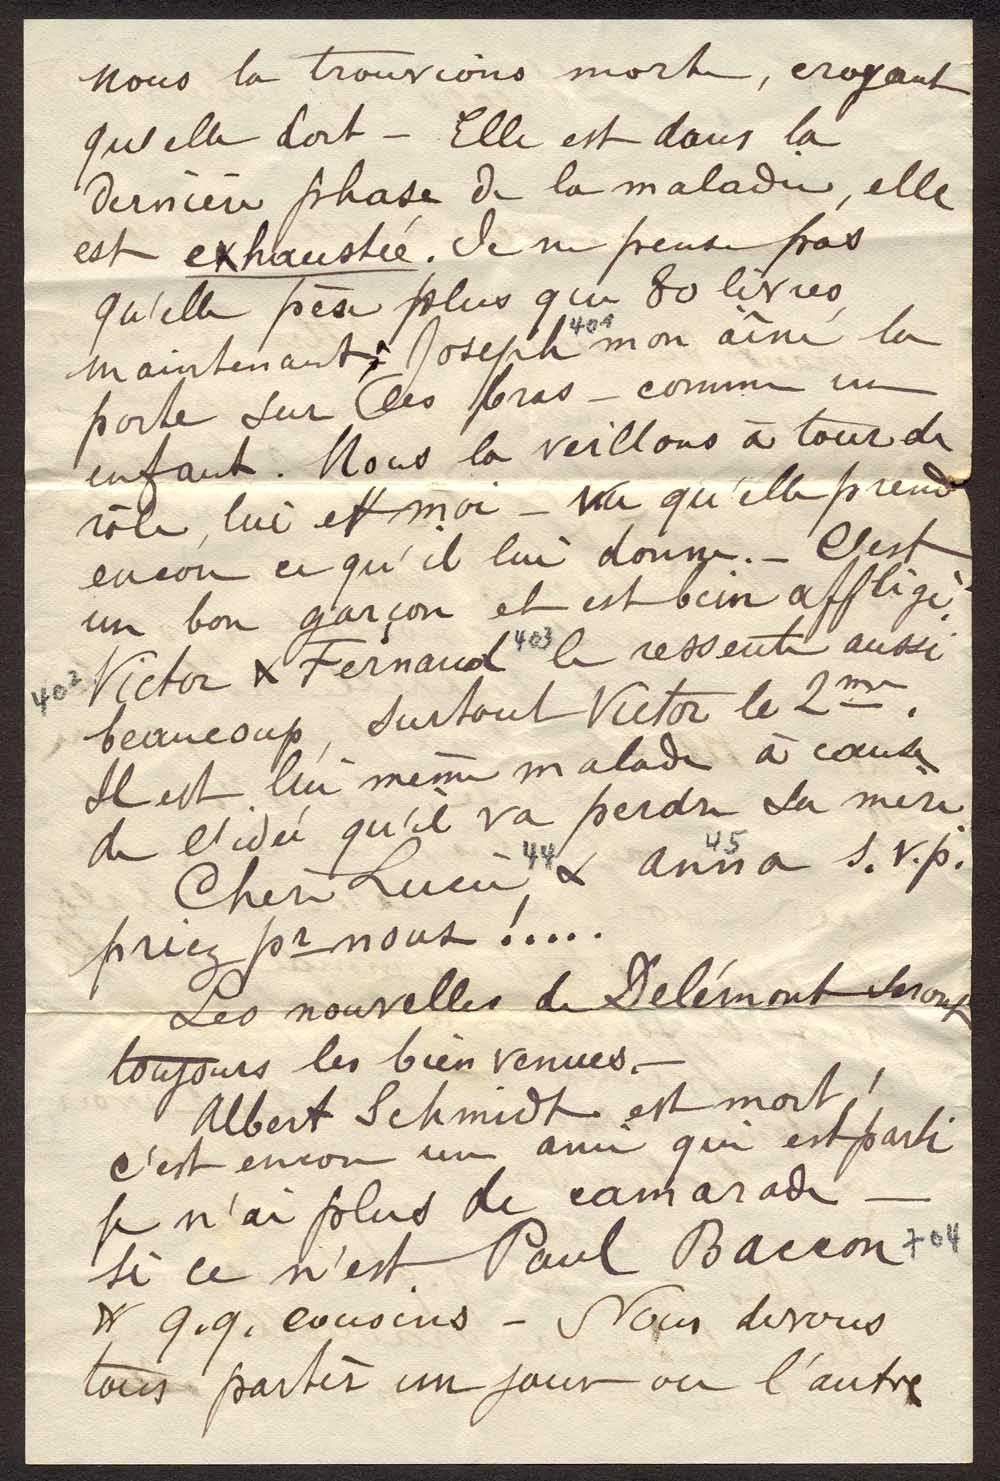 nous la trouvions morte, croyant
qu'elle dort – Elle est dans la
dernière phase de la maladie, elle
est exhaustée. Je ne pense pas
qu'elle pèse plus que 80 livres
maintenant; Joseph 401 mon aîné la
porte sur les bras – comme un
enfant. Nous la veillons à tour de
rôle, lui et moi – vu qu'elle prend
encore ce qu'il lui donne. – C'est
un bon garçon et est bien affligé.
402 Victor & Fernand 403 le ressente aussi
beaucoup, surtout Victor le 2me.
Il est lui même malade à cause
de l'idée qu'il va perdre sa mère
Chère Lucie, 44 & Anna 45 s.v.p.
priez pr nous !.....
Les nouvelles de Delémont seront
toujours les bien venues. –
Albert Schmidt est mort !
c'est encore un ami qui est parti
je n'ai plus de camarade —
si ce n'est Paul Baccon 704
& q.q. cousins – Nous devons
tous partir un jour ou l'autre